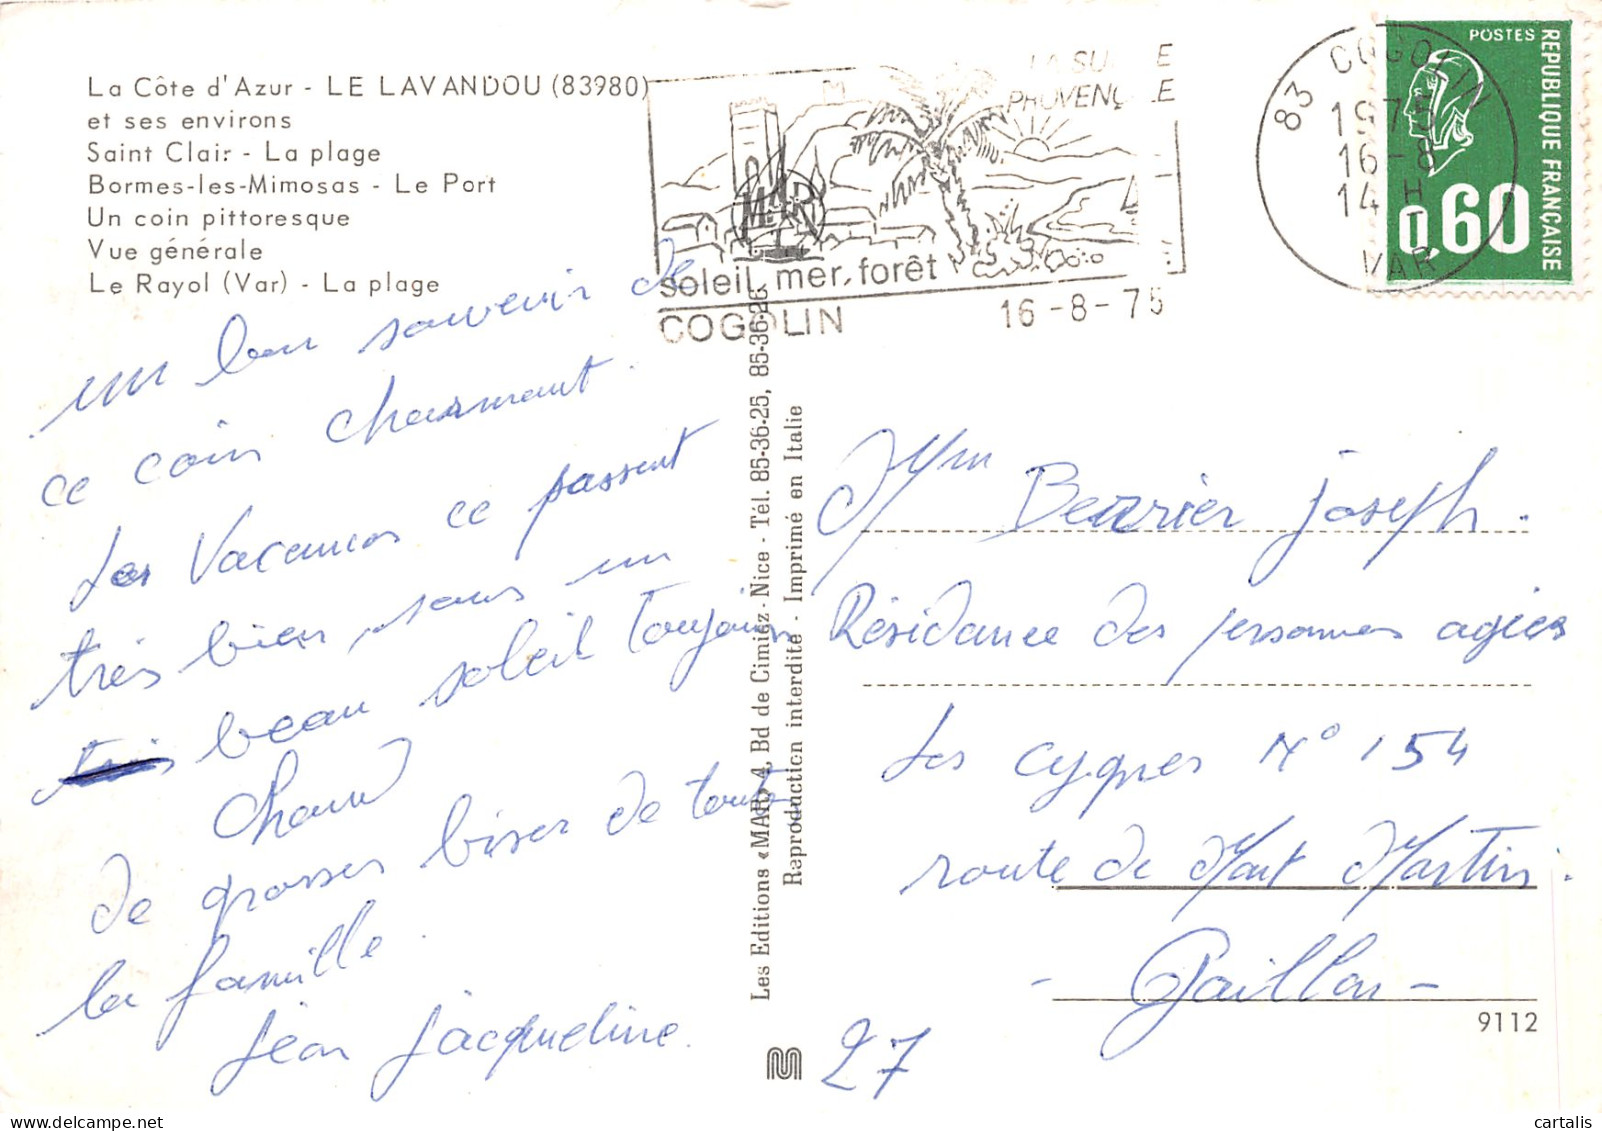 La Côte d'Azur - LE LAVANDOU (83980)
et ses environs
Saint Clair - La plage
Bormes-les-Mimosas - Le Port
Un coin pittoresque
Vue générale
Le Rayol (Var) - La plage
un bon souvenir de
ce coin charmant.
Les Vacances ce passent
très bien, sous un
très beau soleil toujours
Chaud
de grosses bises de toute
la famille.
jean jacqueline.
LA SU E
PROVENÇ LE
MAR
soleil, mer, forêt
COGOLIN
16-8-75
83 COGOLIN
1975
16-8
14 H
VAR
POSTES
REPUBLIQUE FRANÇAISE
0,60
Les Editions «MAR» 4, Bd de Cimiez - Nice - Tél. 85-36-25, 85-36-26
Raproduction interdite - Imprimé en Italie
Mme Berrier joseph.
Résidance des personnes agées
Les cygnes N° 154
route de Mont Martin.
- Gaillon -
27
9112
M